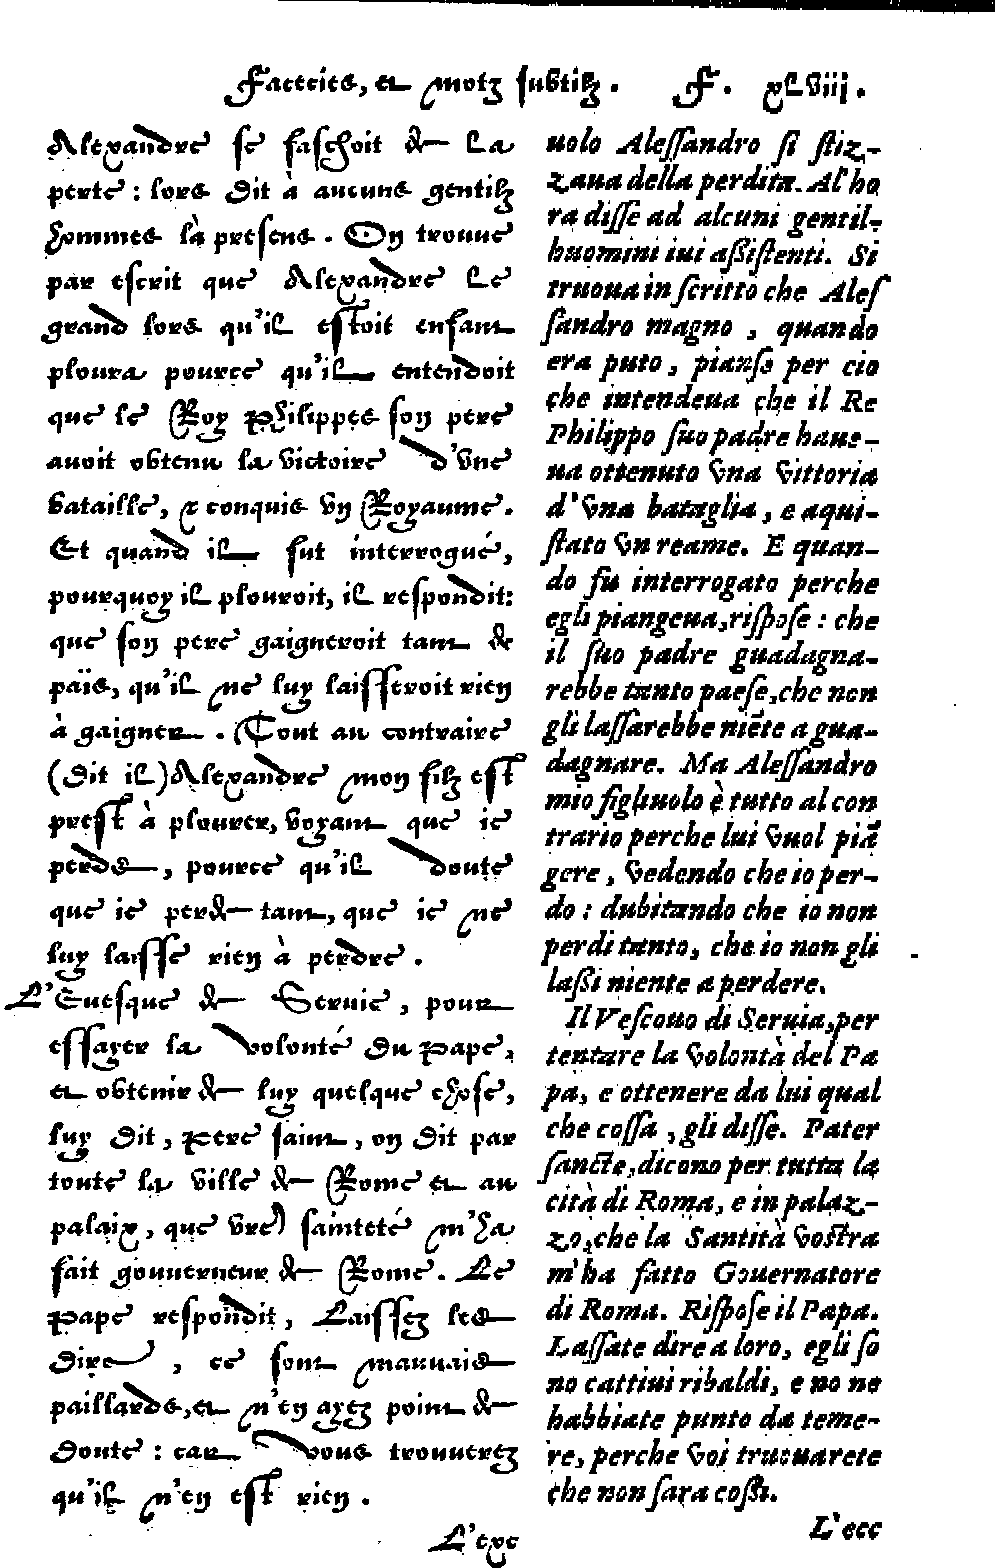 Facecies, et motz subtilz. F. xlviij.
Alexandre se faschoit de la
perte: lors dit à aucuns gentilz
hommes là presens. On trouue
par escrit que Alexandre le
grand lors qu'il estoit enfant
ploura pource qu'il entendoit
que le Roy Philippes son pere
auoit obtenu la victoire d'vne
bataille, & conquis vn Royaume.
Et quand il fut interrogué,
pourquoy il plouroit, il respondit:
que son pere gaigneroit tant de
païs, qu'il ne luy laisseroit rien
à gaigner. Tout au contraire
(dit il) Alexandre mon filz est
prest à plourer, voyant que ie
perds, pource qu'il doute
que ie perde tant, que ie ne
luy laisse rien à perdre.
L'Euesque de Seruie, pour
essayer la volonté du pape,
et obtenir de luy quelque chose,
luy dit, pere saint, on dit par
toute la ville de Rome et au
palaix, que vre saincteté m'ha
fait gouuerneur de Rome. Le
pape respondit, Laissez les
dire, ce sont mauuais
paillards, et n'en ayez point de
doute: car vous trouuerez
qu'il n'en est rien.
L'exc
uolo Alessandro si stiz-
zaua della perdita. Al'ho
ra disse ad alcuni gentil-
huomini iui assistenti. Si
truoua in scritto che Ales
sandro magno, quando
era puto, pianse per cio
che intendeua che il Re
Philippo suo padre haue-
ua ottenuto vna vittoria
d'vna bataglia, e aqui-
stato vn reame. E quan-
do fu interrogato perche
egli piangeua, rispose: che
il suo padre guadagna-
rebbe tanto paese, che non
gli lassarebbe niẽte a gua-
dagnare. Ma Alessandro
mio figliuolo è tutto al con
trario perche lui vuol piã
gere, vedendo che io per-
do: dubitando che io non
perdi tanto, che io non gli
lassi niente a perdere.
Il Vescouo di Seruia, per
tentare la volontà del Pa
pa, e ottenere da lui qual
che cossa, gli disse. Pater
sancte, dicono per tutta la
città di Roma, e in palaz-
zo, che la Santità vostra
m'ha fatto Gouernatore
di Roma. Rispose il Papa.
Lassate dire a loro, egli so
no cattiui ribaldi, e no ne
habbiate punto da teme-
re, perche voi truouarete
che non sara cossi.
L'ecc